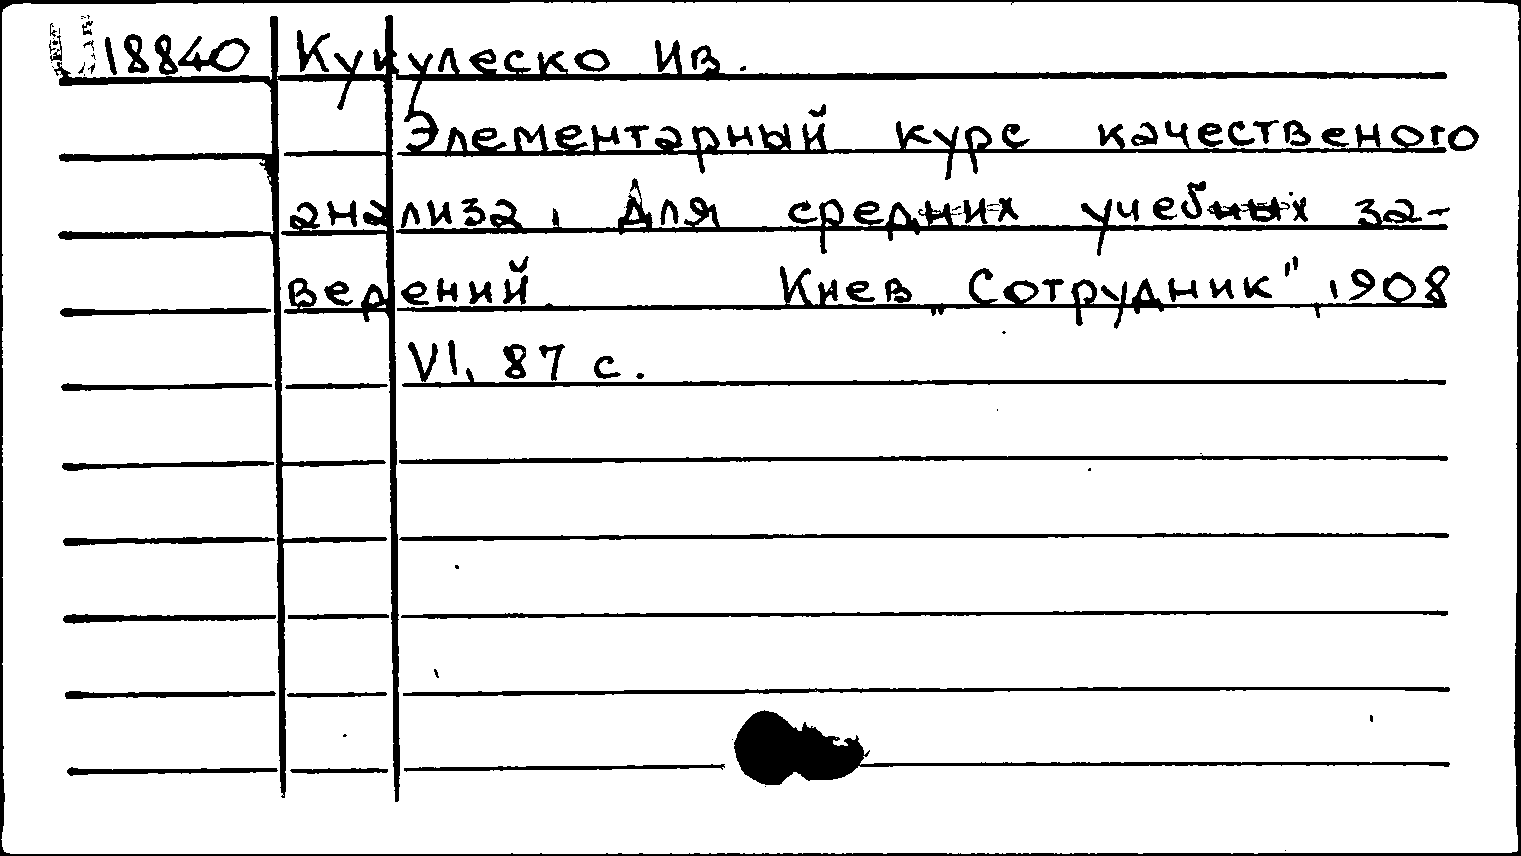 18840 Кукулеско Ив.
Элементарный курс качественого
анализа. Для средних учебных за-
ведений. Киев „Сотрудник", 1908
VI, 87 с.